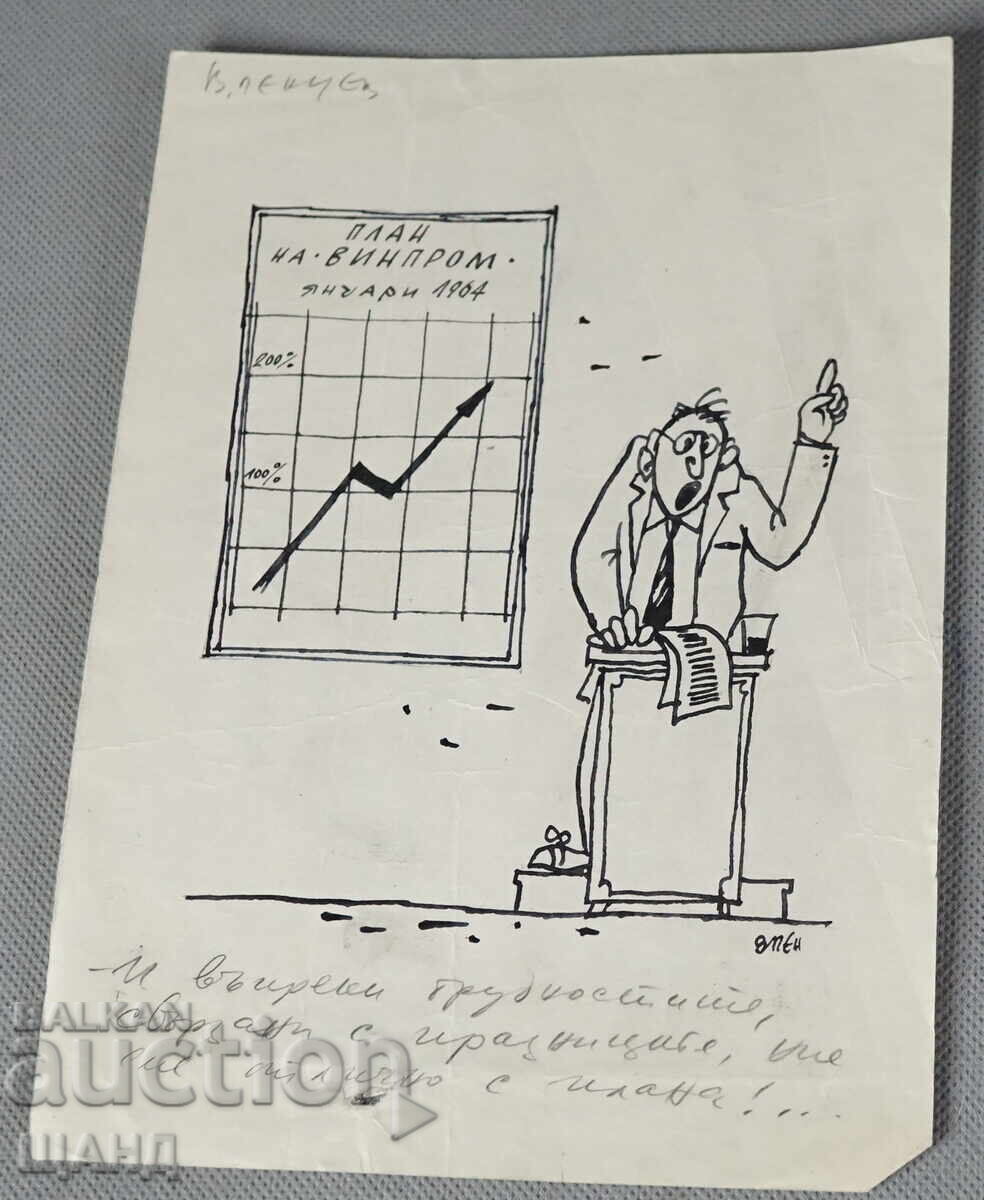 В. ПЕНЧЕВ
ПЛАН
НА·ВИНПРОМ·
ЯНУАРИ 1964
200%
100%
ВПЕН
- И въпреки трудностите,
свързани с празниците, ние
сме отлично с плана!...
BALKAN
auction
ЩАНД